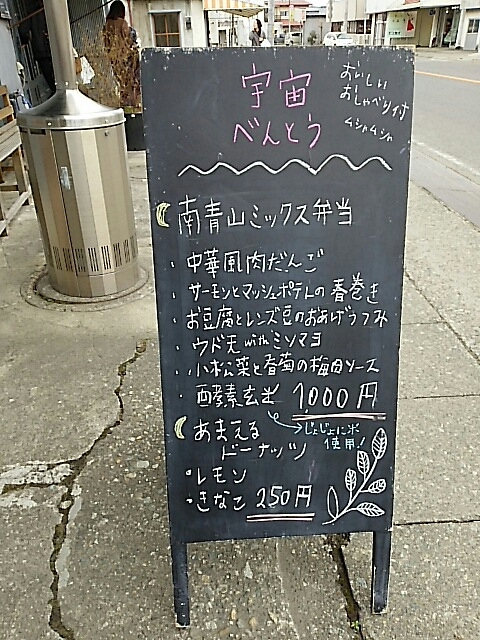 宇宙
べんとう
おいしい
おしゃべり付
ムシャムシャ
南青山ミックス弁当
・中華風肉だんご
・サーモンとマッシュポテトの春巻き
・お豆腐とレンズ豆のおあげつつみ
・ウド天withミソマヨ
・小松菜と春菊の梅肉ソース
・酵素玄米 1000円
じょじょに米
使用!
あまえる
ドーナッツ
・レモン
・きなこ 250円